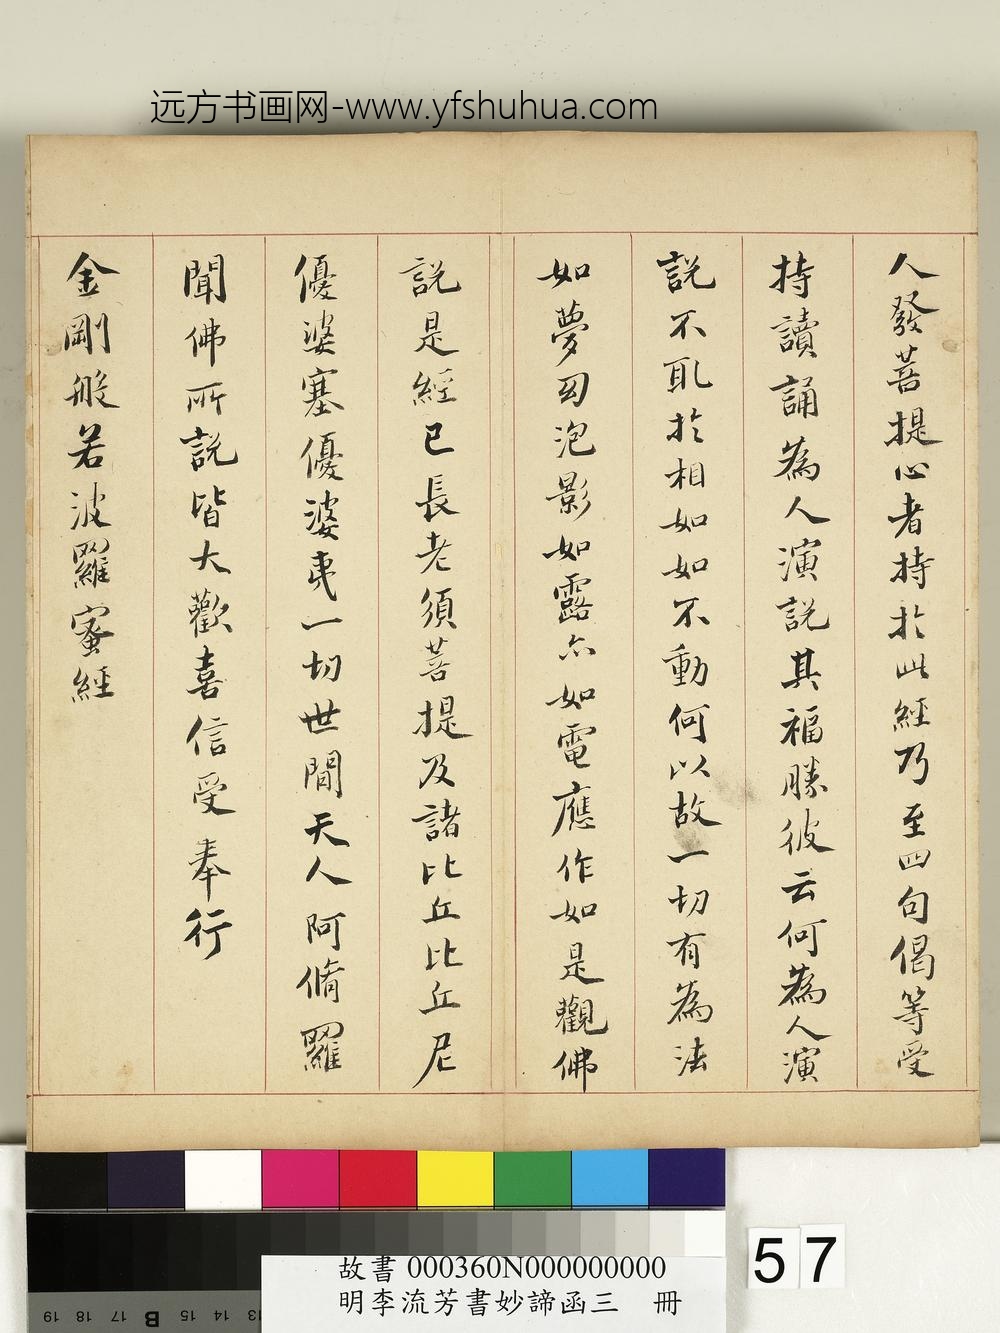 远方书画网-www.yfshuhua.com
人發菩提心者持於此經乃至四句偈等受
持讀誦為人演說其福勝彼云何為人演
說不取於相如如不動何以故一切有為法
如夢幻泡影如露亦如電應作如是觀佛
說是經已長老須菩提及諸比丘比丘尼
優婆塞優婆夷一切世間天人阿脩羅
聞佛所說皆大歡喜信受奉行
金剛般若波羅蜜經
57
故書 000360N000000000
明李流芳書妙諦函三 冊
19 18 17 B 15 14 13